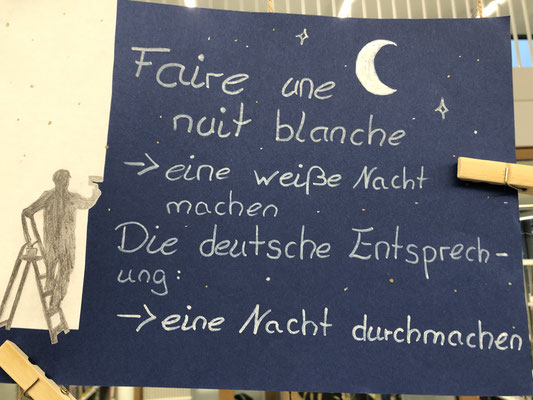 Faire une
nuit blanche
-> eine weiße Nacht
machen
Die deutsche Entsprech-
ung:
-> eine Nacht durchmachen